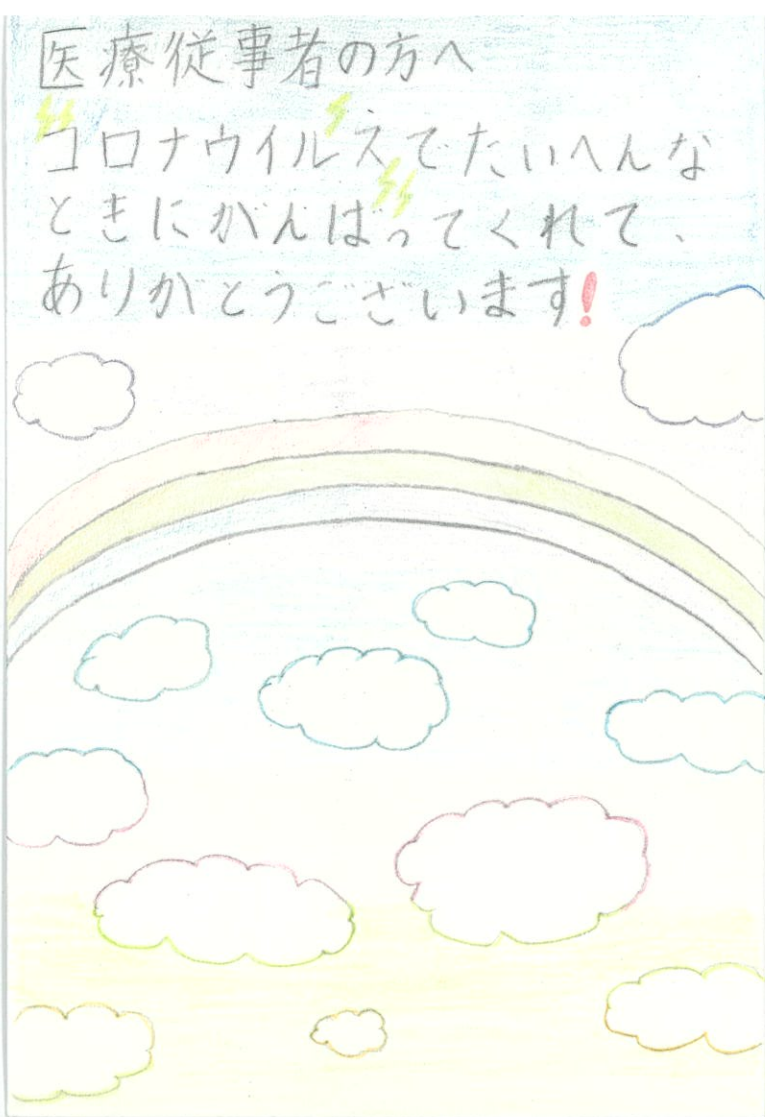 医療従事者の方へ
コロナウイルスでたいへんな
ときにがんばってくれて、
ありがとうございます!